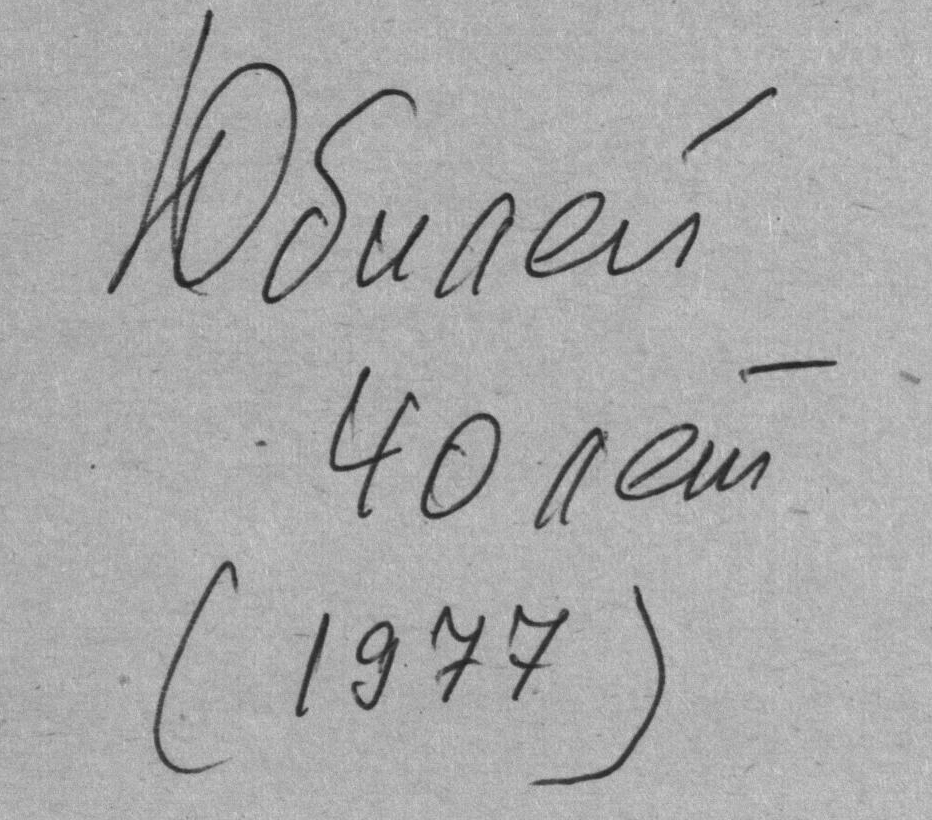 Юбилей
40 лет
(1977)